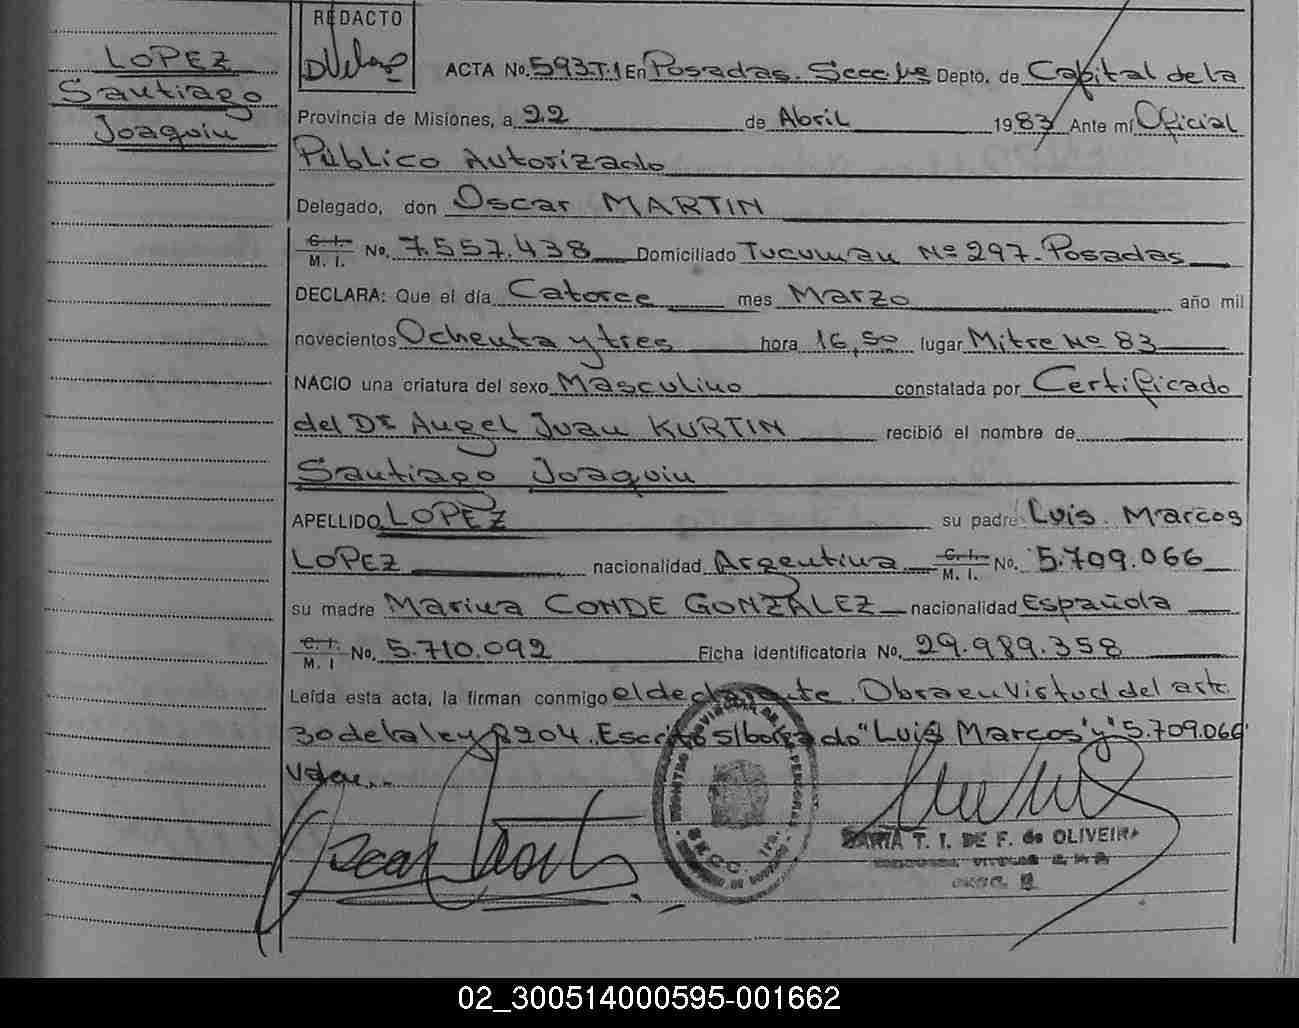 LOPEZ
Santiago
Joaquin
REDACTO
ACTA No. 593.T.1 En Posadas. Secc 1ra Depto. de Capital de la
Provincia de Misiones, a 22 de Abril 1983 Ante mí Oficial
Público Autorizado
Delegado, don Oscar MARTIN
C. I. M. I. No. 7.557.438 Domiciliado Tucuman Nº 297. Posadas
DECLARA: Que el día Catorce mes Marzo año mil
novecientos Ochenta y tres hora 16,50 lugar Mitre Nº 83
NACIO una criatura del sexo Masculino constatada por Certificado
del Dr Angel Juan KURTIN recibió el nombre de
Santiago Joaquin
APELLIDO LOPEZ su padre Luis Marcos
LOPEZ nacionalidad Argentina C. I. M. I. No. 5.709.066
su madre Marina CONDE GONZALEZ nacionalidad Española
C. I. M. I No. 5.710.092 Ficha Identificatoria No. 29.989.358
Leída esta acta, la firman conmigo el declarante. Obra en virtud del art.
30 de la ley 8204. Escrito s/borrado "Luis Marcos" y "5.709.066"
Vale..
SECC. 1ra.
MARIA T. I. DE F. de OLIVEIRA
02_300514000595-001662